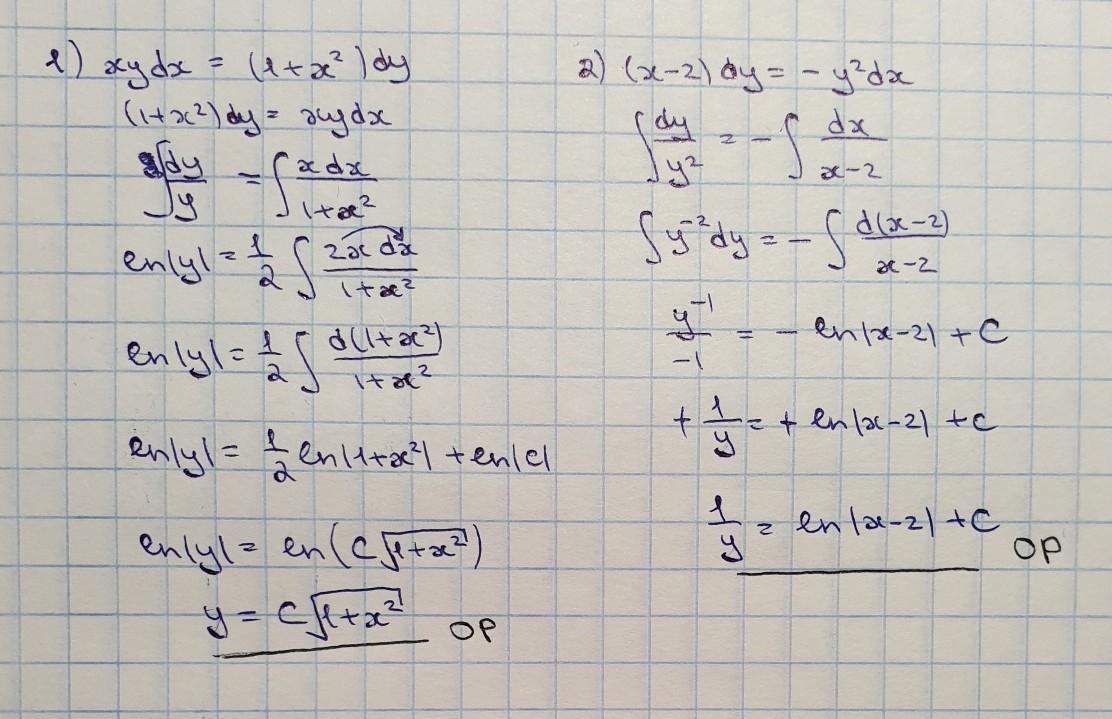 1) xydx = (1+x²)dy
(1+x²)dy = xydx
∫ dy/y = ∫ xdx/(1+x²)
ln|y| = 1/2 ∫ 2xdx/(1+x²)
ln|y| = 1/2 ∫ d(1+x²)/(1+x²)
ln|y| = 1/2 ln|1+x²| + ln|c|
ln|y| = ln(C√(1+x²))
y = C√(1+x²) OP
2) (x-2)dy = -y²dx
∫ dy/y² = -∫ dx/(x-2)
∫ y⁻²dy = -∫ d(x-2)/(x-2)
y⁻¹/-1 = - ln|x-2| + C
+ 1/y = + ln|x-2| + C
1/y = ln|x-2| + C OP